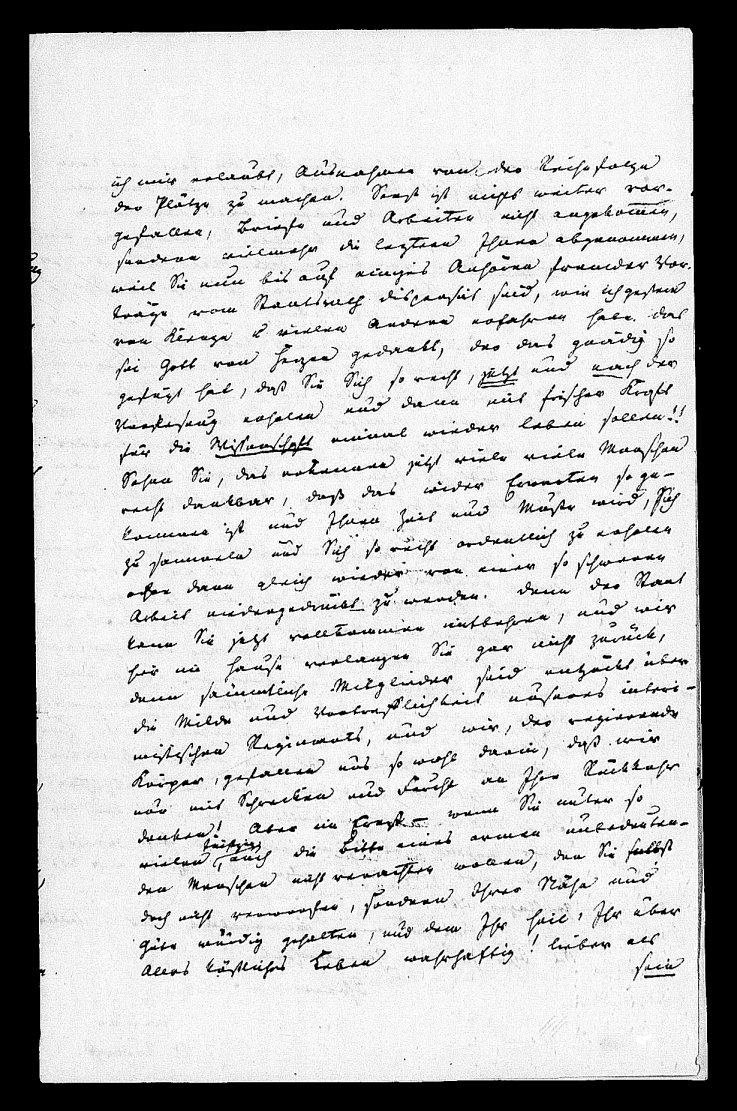 ich mir erlaubt, Ausnahmen von der Reihefolge
der Plätze zu machen. Sonst ist nichts weiter vor-
gefallen, Briefe und Arbeiten nicht angekommen,
sondern vielmehr die letztern Ihnen abgenommen,
weil Sie nun bis auf einiges Anhören fremder Vor-
träge vom Staatsrath dispensirt sind, wie ich gestern
von Klenze & vielen Andern erfahren habe. Das
sei Gott von Herzen gedankt, der das gnädig so
gefügt hat, daß Sie Sich so recht, jetzt und nach der
Vorlesung erholen und dann mit frischer Kraft
für die Wissenschaft einmal wieder leben sollen!!
Sehen Sie, das erkennen jetzt viele viele Menschen
recht dankbar, daß das wider Erwarten so ge-
kommen ist und Ihnen Zeit und Muße wird, Sich
zu sammeln und Sich so recht ordentlich zu erholen
ohne dann gleich wieder von einer so schweren
Arbeit niedergedrückt zu werden. Denn der Staat
kann Sie jetzt vollkommen entbehren, und wir
hier im Hause verlangen Sie gar nicht zurück,
denn sämmtliche Mitglieder sind entzückt über
die Milde und Vortrefflichkeit unseres interi-
mistischen Regiments, und wir, der regierende
Körper, gefallen uns so wohl darin, daß wir
nur mit Schrecken und Furcht an Ihre Rückkehr
denken! Aber im Ernst – wenn Sie unter so
vielen, auch die Bitte eines armen unbedeuten-
den Menschen nicht verachten wollen, den Sie selbst
doch nicht verworfen, sondern Ihrer Nähe und
Güte würdig gehalten, und dem Ihr Heil, Ihr über
Alles köstliches Leben wahrhaftig! lieber als
sein